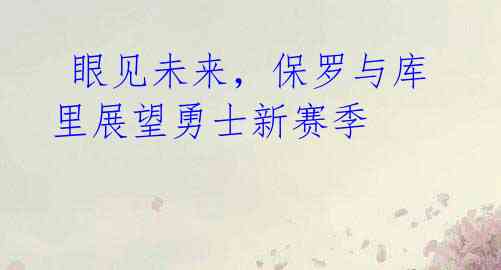 眼见未来，保罗与库
里展望勇士新赛季